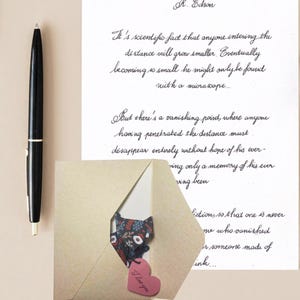 R. Edson
It's scientific fact that anyone entering the
distance will grow smaller. Eventually
becoming so small he might only be found
with a microscope...
But there's a vanishing point, where anyone
having penetrated the distance must
disappear entirely without hope of his ever-
ing only a memory of his ever
ing been
ictions so that one is never
who vanished
someone made of
ink...